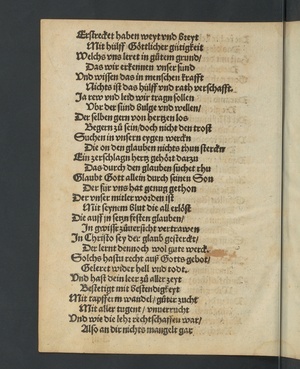 Erstrecket haben weyt vnd breyt
Mit hülff Göttlicher gütigkeit
Welchs vns leret in gütem grund/
Das wir erkennen vnser sünd
Vnd wissen das in menschen krafft
Nichts ist das hülff vnd rath verschafft.
Ja rew vnd leid wir tragn sollen
Vbr der sünd vnd wellen/
Der selben gern von hertzen los
Begern zů sein/doch nicht den trost
Suchen in vnsern eygen wercken
Die on den glauben nichts thun stercken
Ein zerschlagn hertz gehört darzu
Das durch den glauben suchet rhu
Glaubt Gott allein durch seinen Son
Der für vns hat genug gethon
Der vnser mitler worden ist
Mit seynem blut die all erlöst
Die auff jn setzn festen glauben/
In gwisse zůversicht vertrawen
In Christo sey der glaub gesterckt/
Der lernt dennoch wol gute werck.
Solchs hastu recht auff Gotts gebot/
Geleret wider hell vnd todt.
Vnd hast dein leer zů aller zeyt
Bestetigt mit bestendigkeyt
Mit tapfferm wandel/ güter zucht
Mit aller tugent/ vnverrucht
Vnd wie die lehr rechtschaffen war/
Also an dir nichts mangelt gar